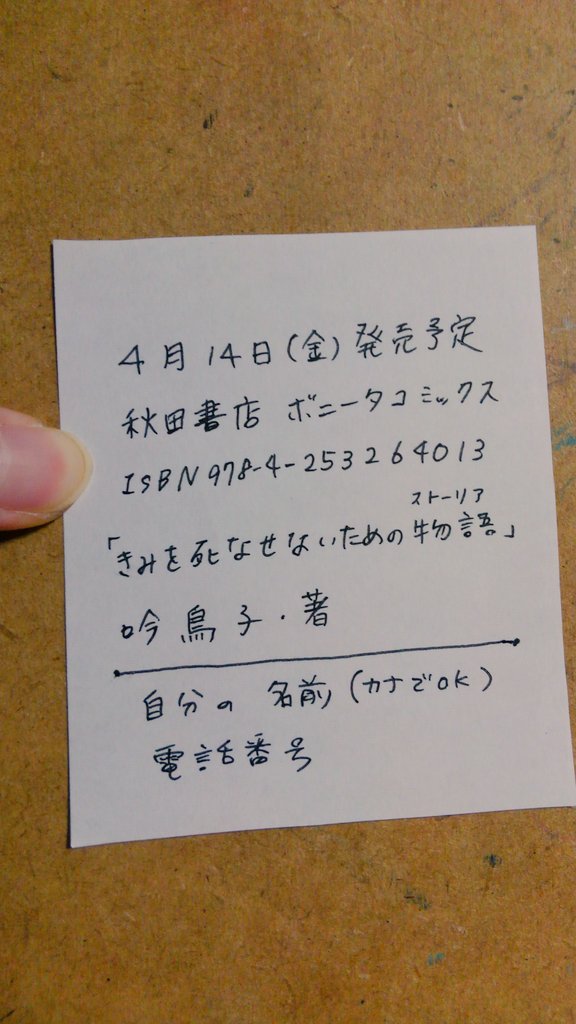 4月14日(金)発売予定
秋田書店 ボニータコミックス
ISBN978-4-253264013
ストーリア
「きみを死なせないための物語」
吟鳥子・著
自分の 名前(カナでOK)
電話番号